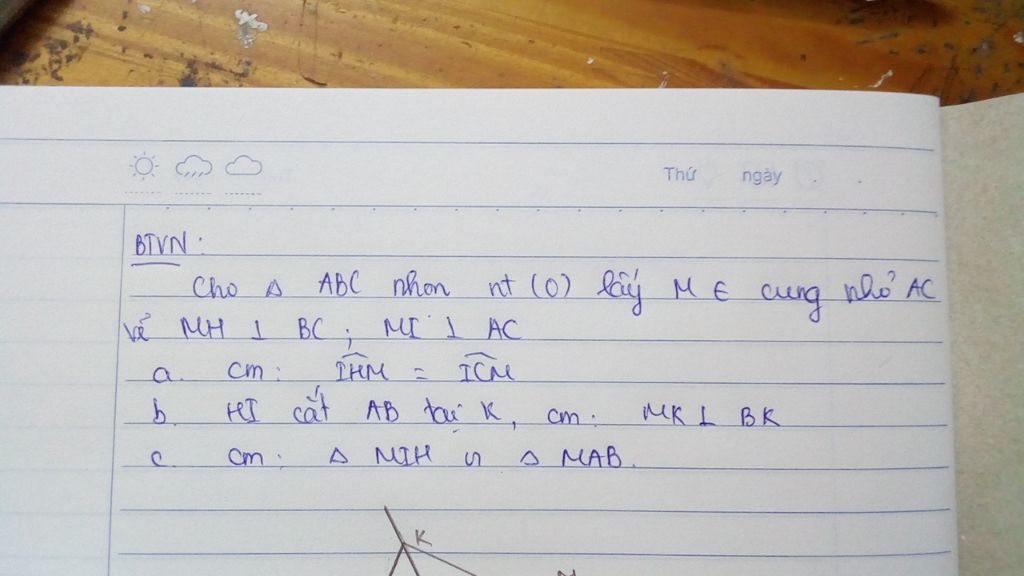 Thứ ngày
BTVN:
Cho Δ ABC nhọn nt (O) lấy M ∈ cung nhỏ AC
vẽ MH ⊥ BC ; MI ⊥ AC
a. cm: ∠IHM = ∠ICM
b. HI cắt AB tại K, cm: MK ⊥ BK
c. cm: Δ MIH ∽ Δ MAB.
K